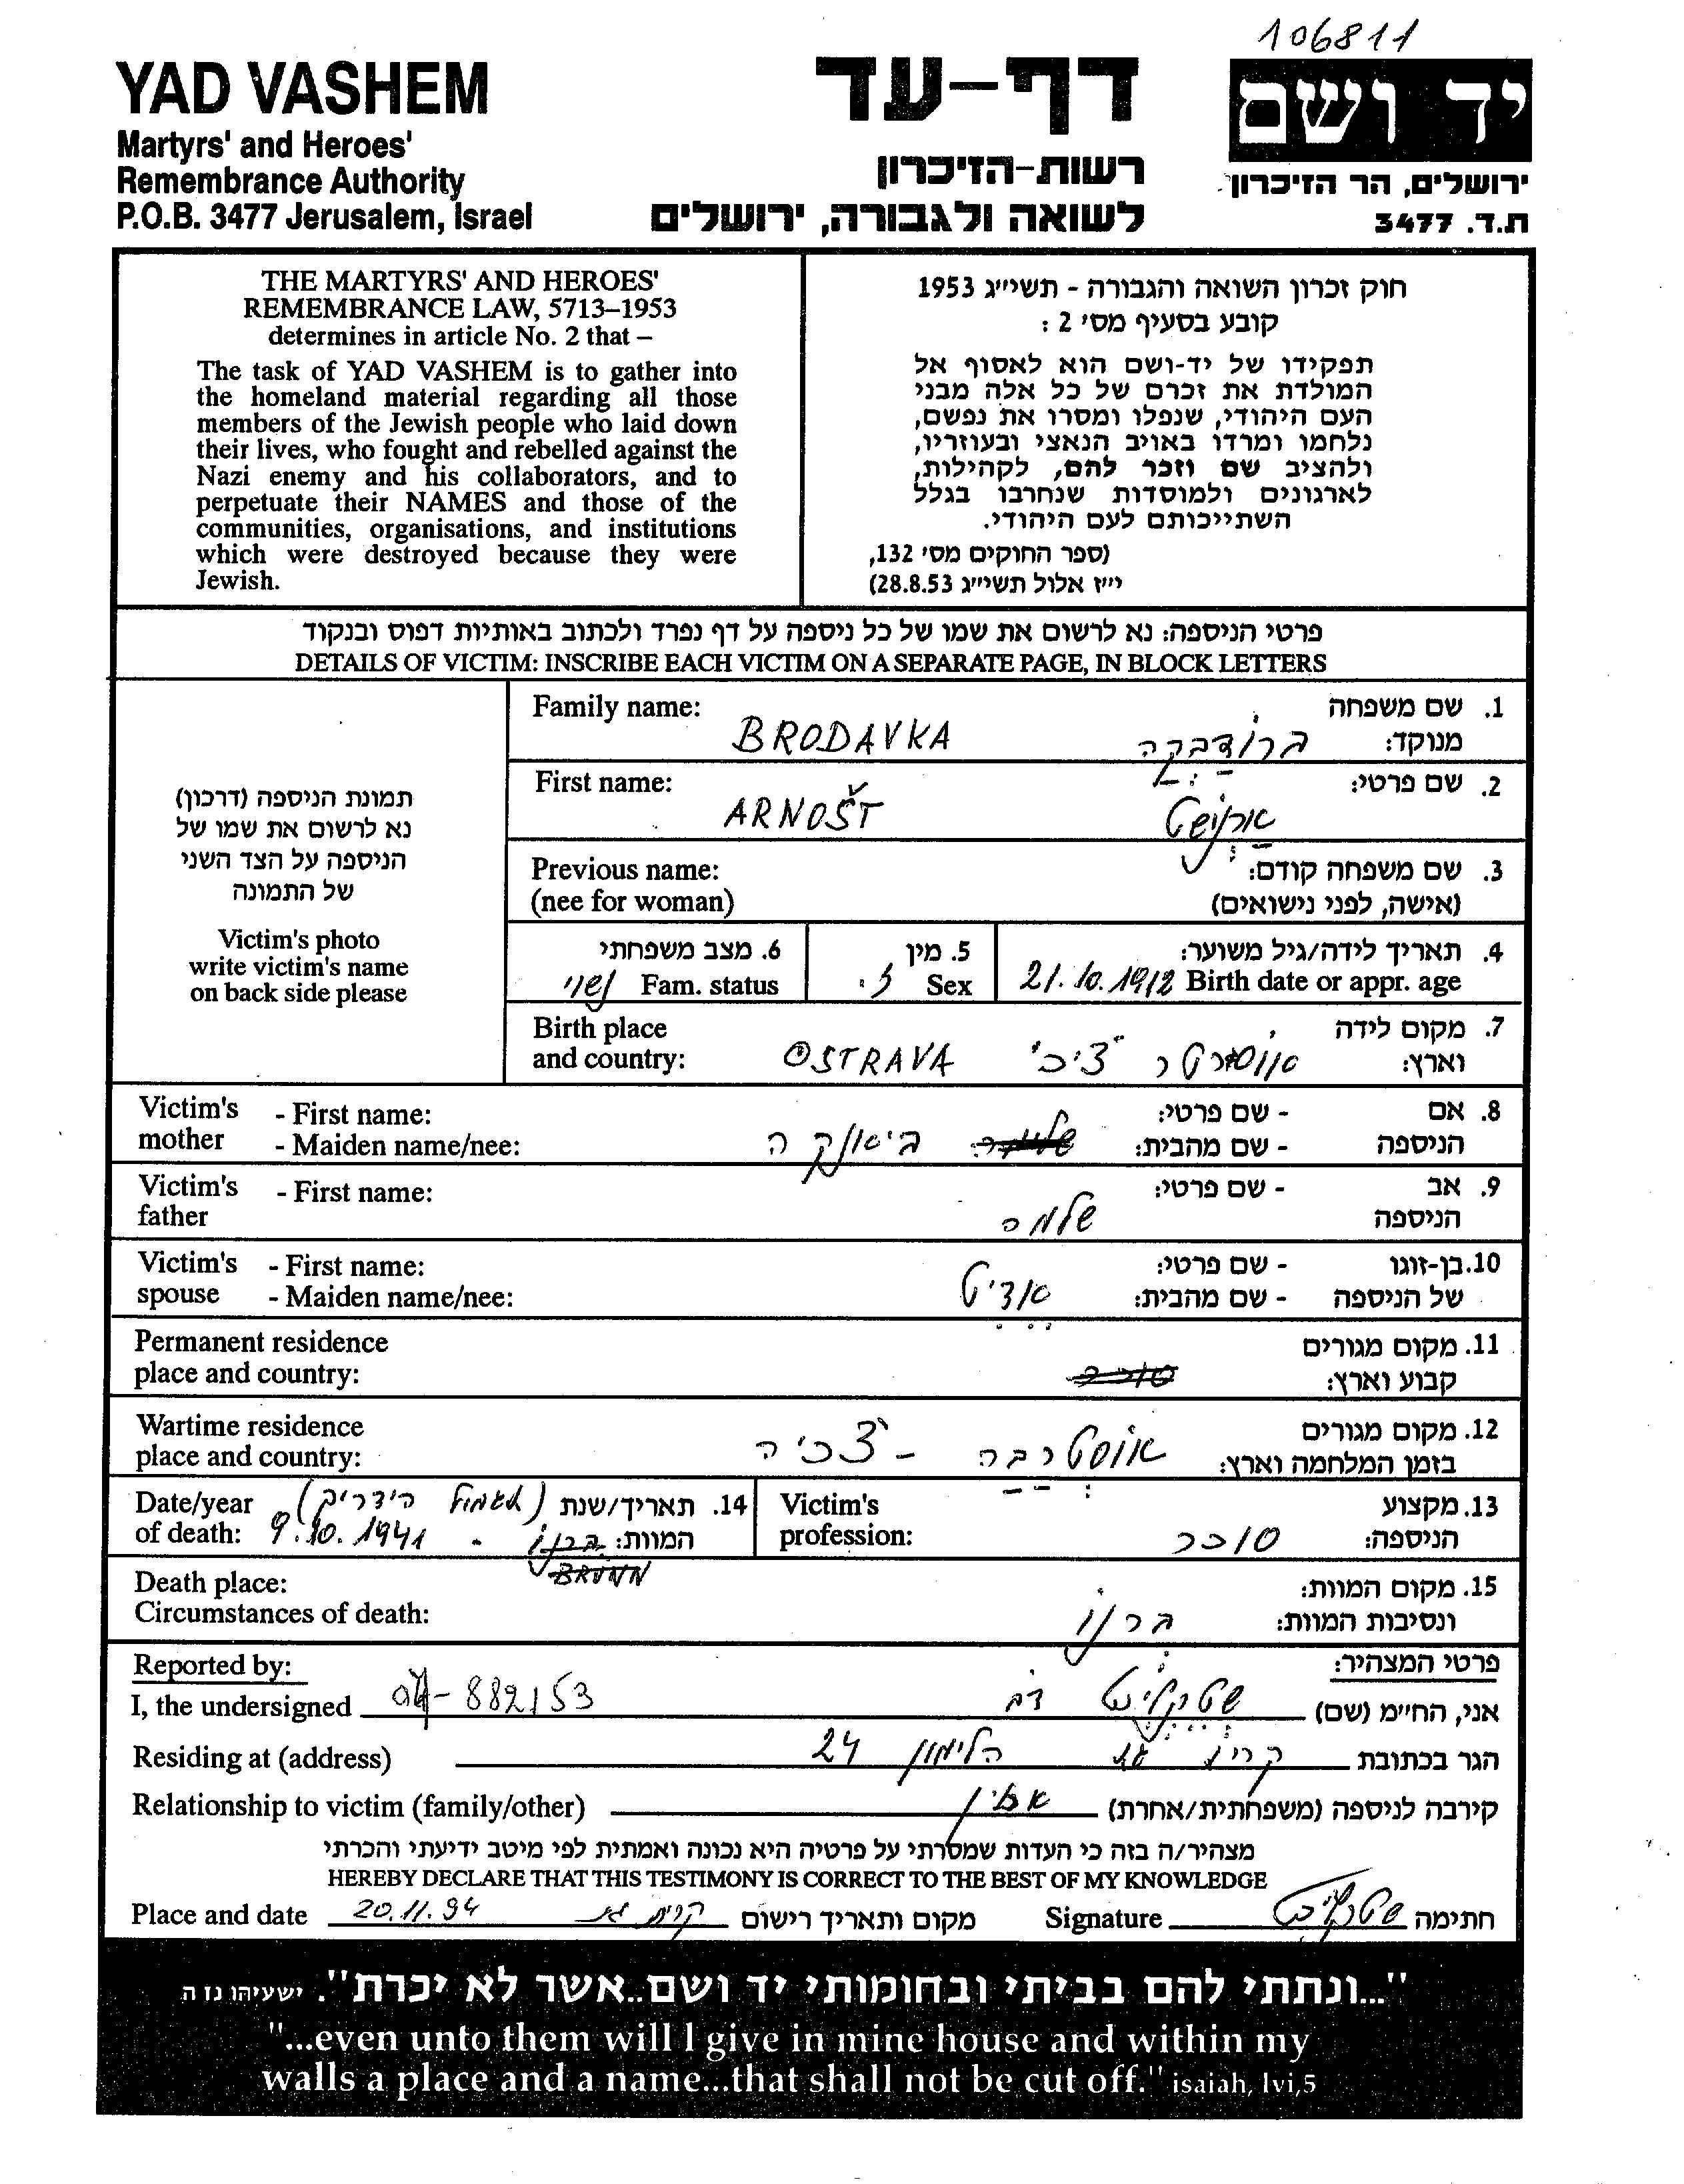 106811
YAD VASHEM
Martyrs' and Heroes'
Remembrance Authority
P.O.B. 3477 Jerusalem, Israel
דף-עד
רשות-הזיכרון
לשואה ולגבורה, ירושלים
יד ושם
ירושלים, הר הזיכרון
ת.ד. 3477
THE MARTYRS' AND HEROES'
REMEMBRANCE LAW, 5713–1953
determines in article No. 2 that –
The task of YAD VASHEM is to gather into
the homeland material regarding all those
members of the Jewish people who laid down
their lives, who fought and rebelled against the
Nazi enemy and his collaborators, and to
perpetuate their NAMES and those of the
communities, organisations, and institutions
which were destroyed because they were
Jewish.
חוק זכרון השואה והגבורה - תשי״ג 1953
קובע בסעיף מס' 2 :
תפקידו של יד-ושם הוא לאסוף אל
המולדת את זכרם של כל אלה מבני
העם היהודי, שנפלו ומסרו את נפשם,
נלחמו ומרדו באויב הנאצי ובעוזריו,
ולהציב שם וזכר להם, לקהילות,
לארגונים ולמוסדות שנחרבו בגלל
השתייכותם לעם היהודי.
(ספר החוקים מס' 132,
י״ז אלול תשי״ג 28.8.53)
פרטי הניספה: נא לרשום את שמו של כל ניספה על דף נפרד ולכתוב באותיות דפוס ובנקוד
DETAILS OF VICTIM: INSCRIBE EACH VICTIM ON A SEPARATE PAGE, IN BLOCK LETTERS
תמונת הניספה (דרכון)
נא לרשום את שמו של
הניספה על הצד השני
של התמונה
Victim's photo
write victim's name
on back side please
Family name: BRODAVKA ברודבקה 1. שם משפחה
מנוקד:
First name: ARNOŠT ארנושט 2. שם פרטי:
Previous name: 3. שם משפחה קודם:
(nee for woman) (אישה, לפני נישואים)
6. מצב משפחתי 5. מין 4. תאריך לידה/גיל משוער:
נשוי Fam. status ז. Sex 21.10.1912 Birth date or appr. age
Birth place 7. מקום לידה
and country: OSTRAVA וארץ:
Victim's - First name: - שם פרטי: 8. אם
mother - Maiden name/nee: - שם מהבית: הניספה
Victim's - First name: - שם פרטי: 9. אב
father שלמה הניספה
Victim's - First name: - שם פרטי: 10. בן-זוגו
spouse - Maiden name/nee: אדיט - שם מהבית: של הניספה
Permanent residence 11. מקום מגורים
place and country: קבוע וארץ:
Wartime residence 12. מקום מגורים
place and country: אוסטרבה - צ'כיה בזמן המלחמה וארץ:
Date/year 14. תאריך/שנת Victim's 13. מקצוע
of death: 9.10.1941 ברנו המוות: profession: סוכר הניספה:
BRÜNN
Death place: 15. מקום המוות:
Circumstances of death: ברנו ונסיבות המוות:
Reported by: פרטי המצהיר:
I, the undersigned 04-882153 אני, הח״מ (שם)
Residing at (address) קרית הלימון 24 הגר בכתובת
Relationship to victim (family/other) קירבה לניספה (משפחתית/אחרת)
מצהיר/ה בזה כי העדות שמסרתי על פרטיה היא נכונה ואמתית לפי מיטב ידיעתי והכרתי
HEREBY DECLARE THAT THIS TESTIMONY IS CORRECT TO THE BEST OF MY KNOWLEDGE
Place and date 20.11.94 קרית מקום ותאריך רישום Signature חתימה
"...ונתתי להם בביתי ובחומותי יד ושם..אשר לא יכרת". ישעיהו נז ה
"...even unto them will I give in mine house and within my
walls a place and a name...that shall not be cut off." isaiah, lvi,5